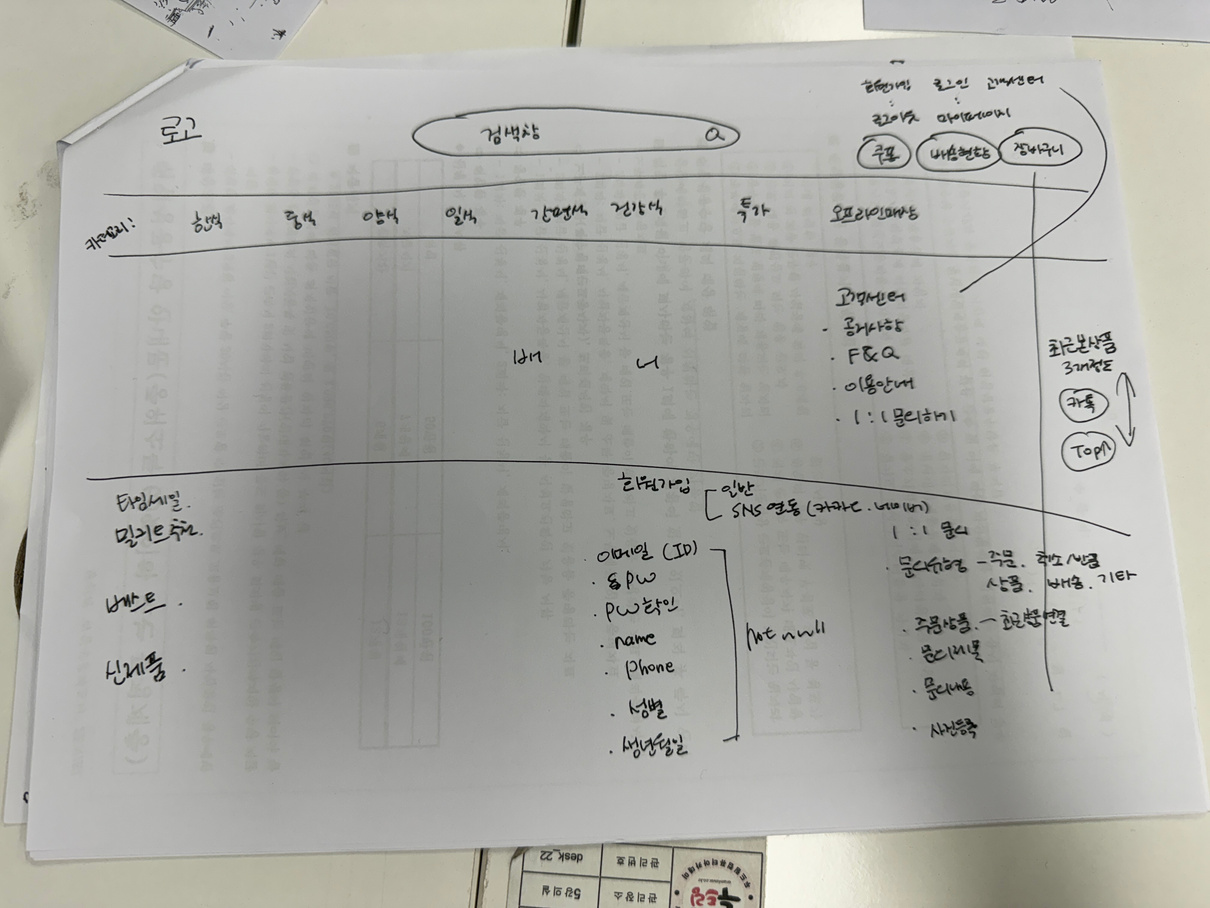 회원가입 로그인 고객센터
로그아웃 마이페이지
로고
검색창
쿠폰 배송현황 장바구니
카테고리: 한식 중식 양식 일식 간편식 건강식 특가 오프라인매장
배 너
고객센터
· 공지사항
· F&Q
· 이용안내
· 1:1 문의하기
최근본상품
3개정도
카톡
Top↑
타임세일.
밀키트추천.
베스트.
신제품.
회원가입
일반
SNS 연동 (카카오. 네이버)
· 이메일 (ID)
· pw
· pw확인
· name
· phone
· 성별
· 생년월일
not null
1:1 문의
· 문의유형 - 주문. 취소/반품
상품. 배송. 기타
· 주문상품. - 최근주문연결
· 문의제목
· 문의내용
· 사진등록
desk_22
관리번호
5강의실
관리장소